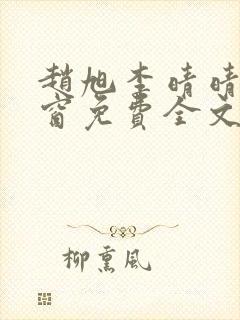 趙旭李晴晴
窗免費全文
柳熏风